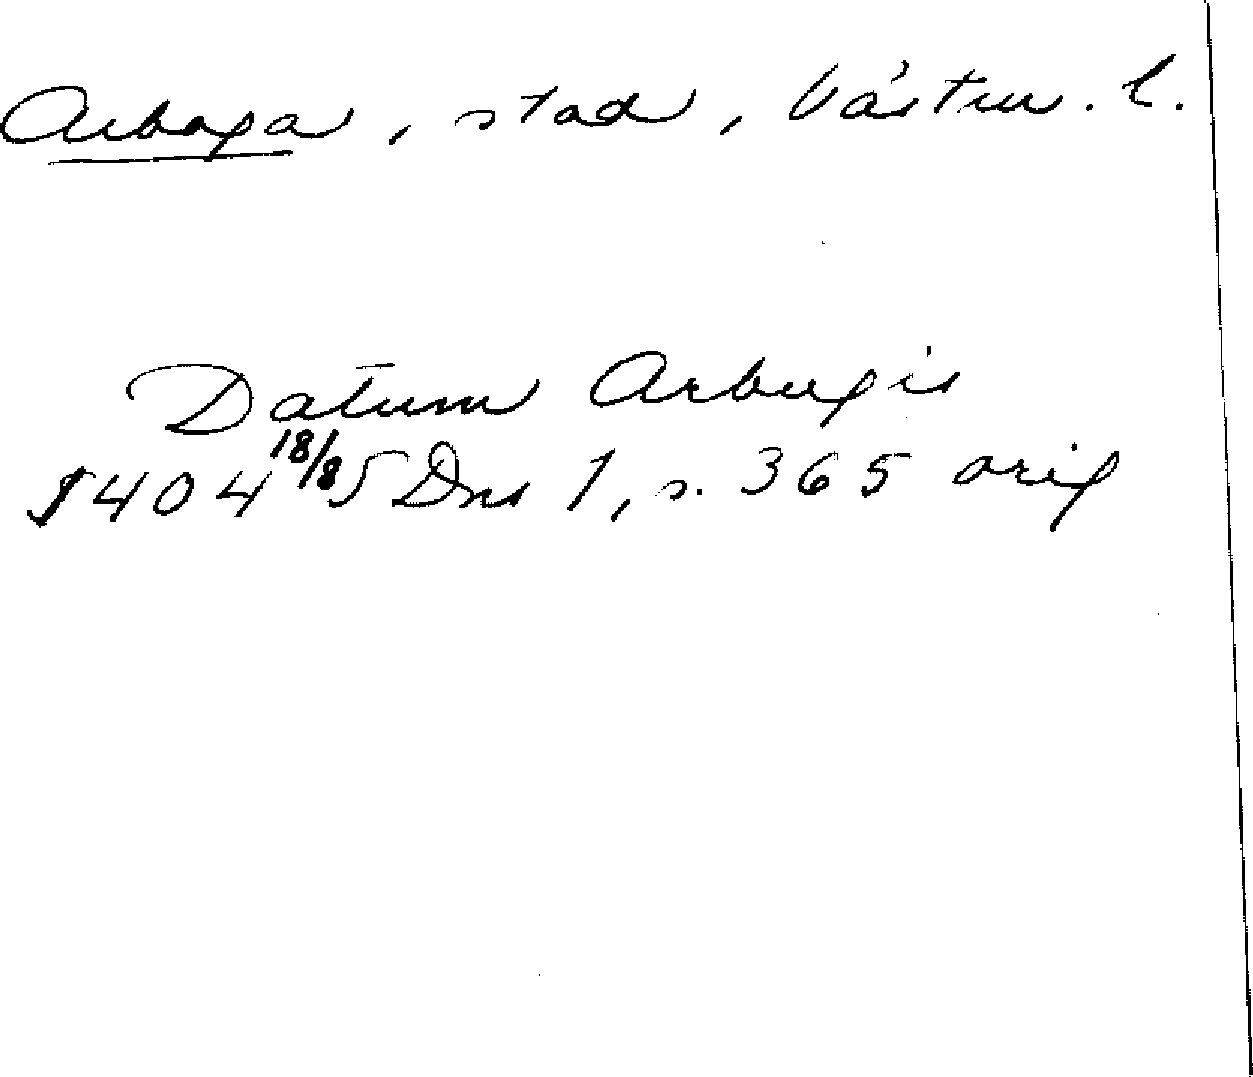 Arboga, stad, Västm. l.
Datum Arbugis
1404 18/8 SDns 1, s. 365 orig